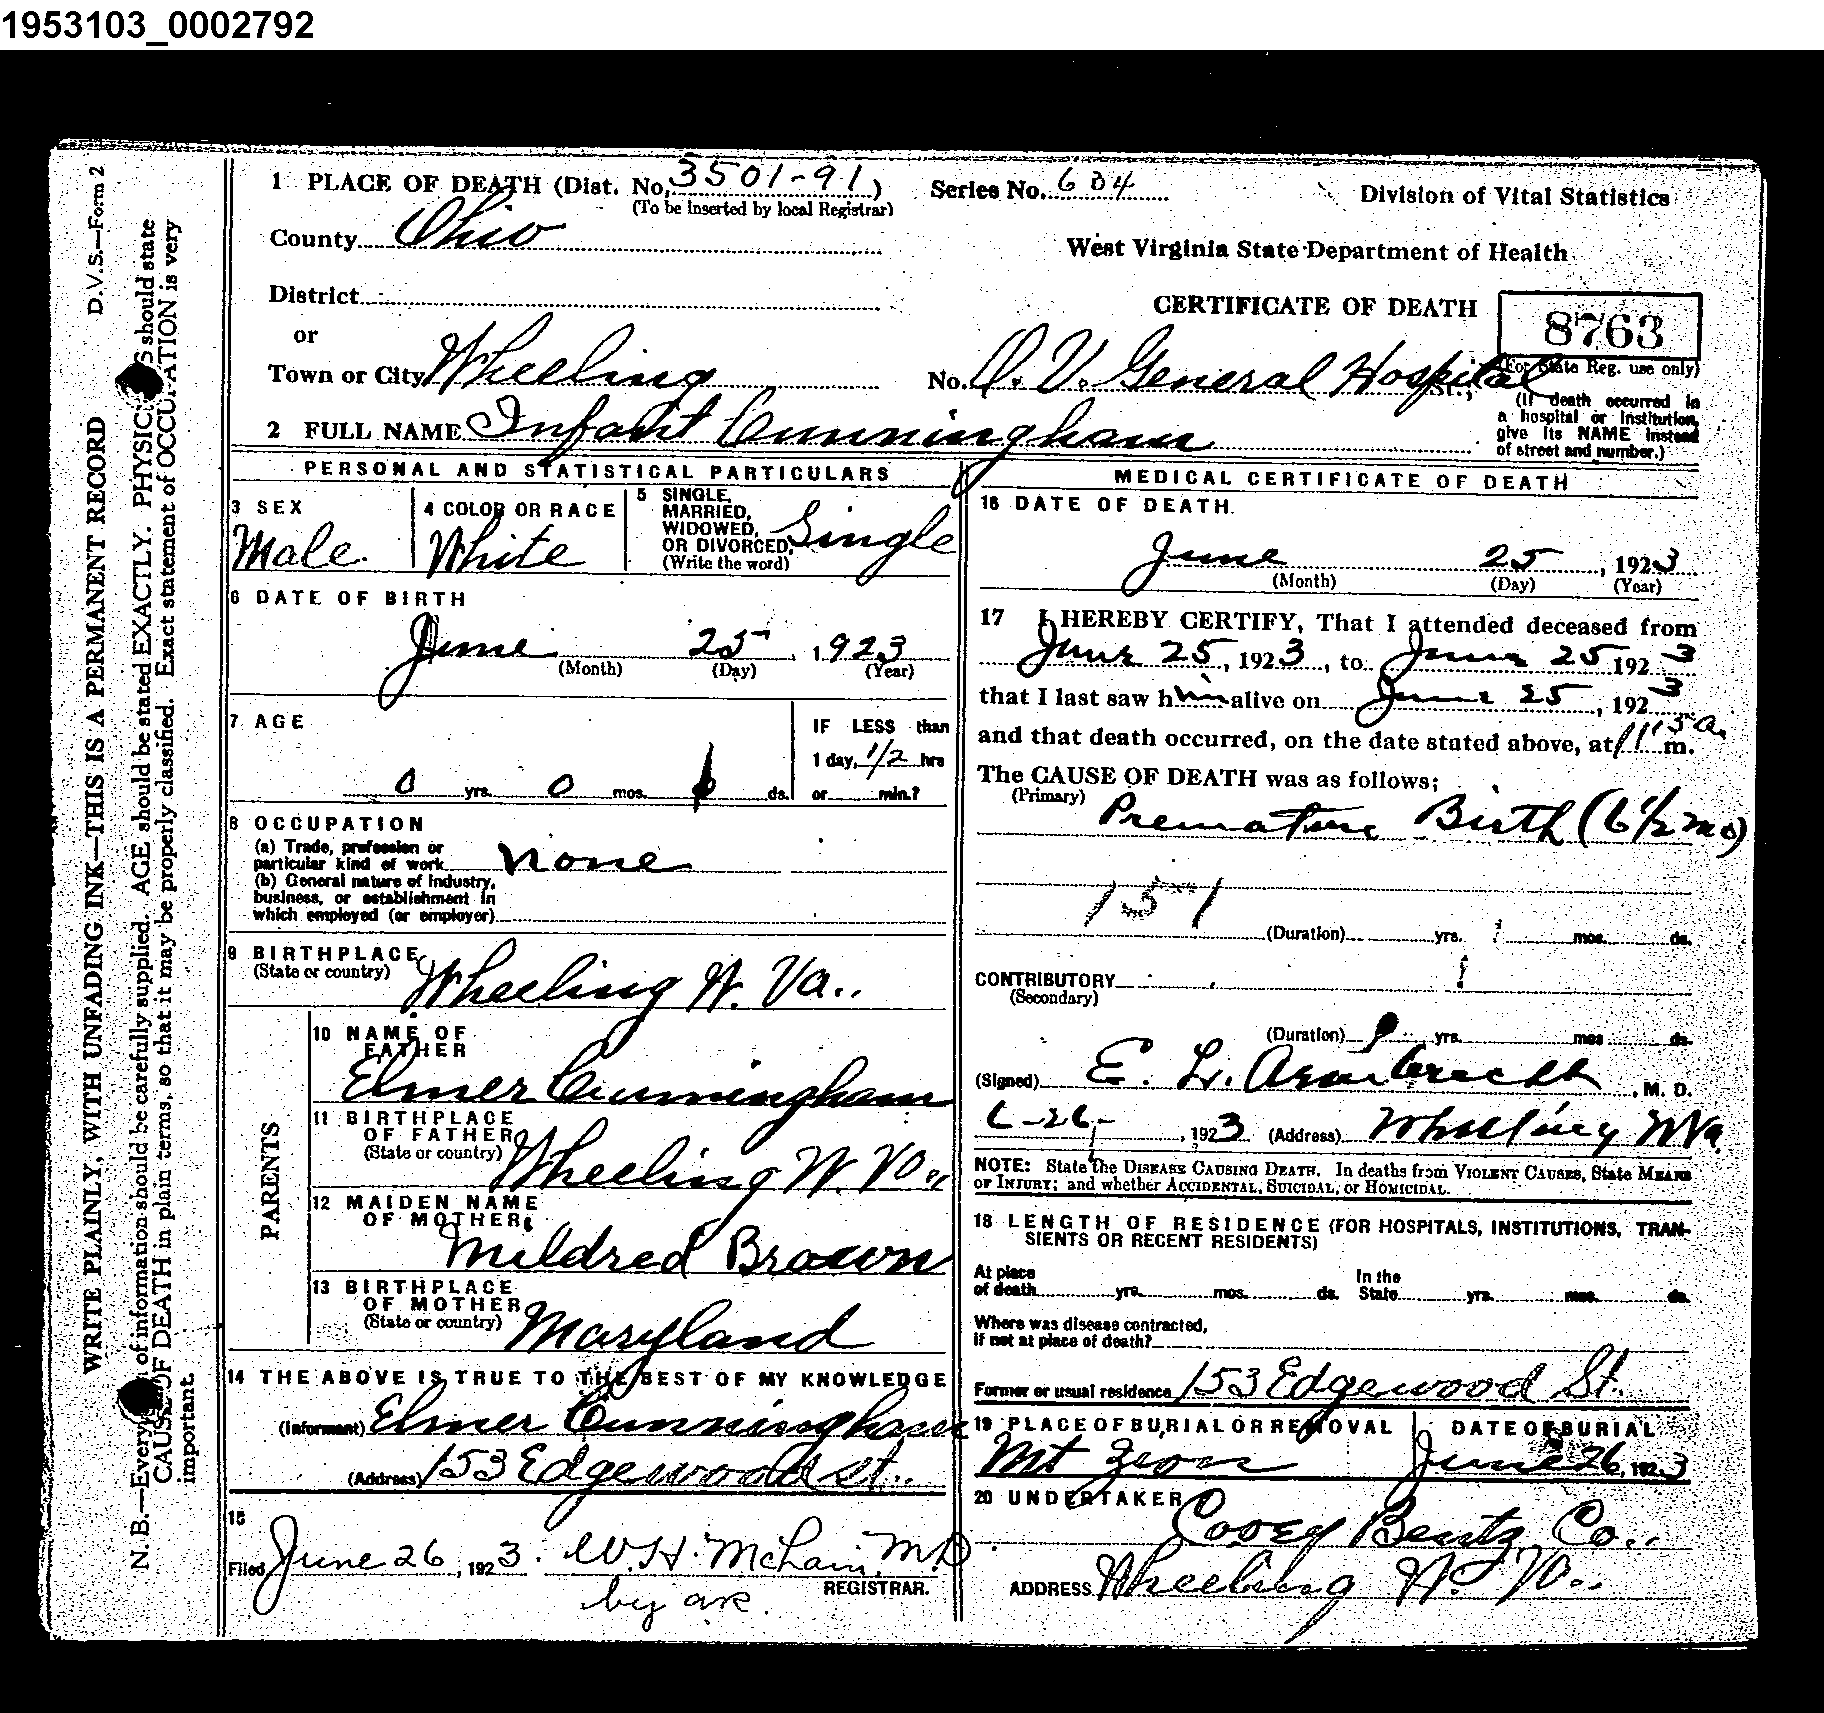 1953103_0002792
D.V.S.—Form 2
WRITE PLAINLY, WITH UNFADING INK—THIS IS A PERMANENT RECORD
N. B.—Every of information should be carefully supplied. AGE should be stated EXACTLY. PHYSIC S should state
CAUSE OF DEATH in plain terms, so that it may be properly classified. Exact statement of OCCUPATION is very
important.
1 PLACE OF DEATH (Dist. No. 3501-91)
(To be inserted by local Registrar)
Series No. 604
Division of Vital Statistics
County Ohio
West Virginia State Department of Health
District
or
CERTIFICATE OF DEATH
8763
(For State Reg. use only)
Town or City Wheeling
No. O. V. General Hospital St.,
(If death occurred in
a hospital or institution,
give its NAME instead
of street and number.)
2 FULL NAME Infant Cunningham
PERSONAL AND STATISTICAL PARTICULARS
3 SEX
Male
4 COLOR OR RACE
White
5 SINGLE,
MARRIED,
WIDOWED,
OR DIVORCED,
(Write the word)
Single
6 DATE OF BIRTH
June 25 1923
(Month) (Day) (Year)
7 AGE
0 yrs. 0 mos. 0 ds.
IF LESS than
1 day, 1/2 hrs
or min.?
8 OCCUPATION
(a) Trade, profession or
particular kind of work none
(b) General nature of industry,
business, or establishment in
which employed (or employer)
9 BIRTHPLACE
(State or country) Wheeling W. Va..
PARENTS
10 NAME OF
FATHER
Elmer Cunningham
11 BIRTHPLACE
OF FATHER
(State or country) Wheeling W. Va..
12 MAIDEN NAME
OF MOTHER
Mildred Brown
13 BIRTHPLACE
OF MOTHER
(State or country) Maryland
14 THE ABOVE IS TRUE TO THE BEST OF MY KNOWLEDGE
(Informant) Elmer Cunningham
(Address) 153 Edgewood St..
15
Filed June 26, 1923. W.H. McLain, M.D.
by
REGISTRAR.
MEDICAL CERTIFICATE OF DEATH
16 DATE OF DEATH
June 25, 1923
(Month) (Day) (Year)
17 I HEREBY CERTIFY, That I attended deceased from
June 25, 1923, to June 25 1923
that I last saw him alive on June 25, 1923
and that death occurred, on the date stated above, at 11 15 a. m.
The CAUSE OF DEATH was as follows:
(Primary) Premature Birth (6 1/2 mo)
(Duration) yrs. mos. ds.
CONTRIBUTORY
(Secondary)
(Duration) yrs. mos. ds.
(Signed) E. L. Armbrecht, M. D.
6-26-, 1923 (Address) Wheeling W Va
NOTE: State the DISEASE CAUSING DEATH. In deaths from VIOLENT CAUSES, State MEANS
OF INJURY; and whether ACCIDENTAL, SUICIDAL, or HOMICIDAL.
18 LENGTH OF RESIDENCE (FOR HOSPITALS, INSTITUTIONS, TRAN-
SIENTS OR RECENT RESIDENTS)
At place
of death yrs. mos. ds.
In the
State yrs. mos. ds.
Where was disease contracted,
if not at place of death?
Former or usual residence 153 Edgewood St.
19 PLACE OF BURIAL OR REMOVAL
Mt Zion
DATE OF BURIAL
June 26, 1923
20 UNDERTAKER
Cooey Bentz Co..
ADDRESS Wheeling W. Va..